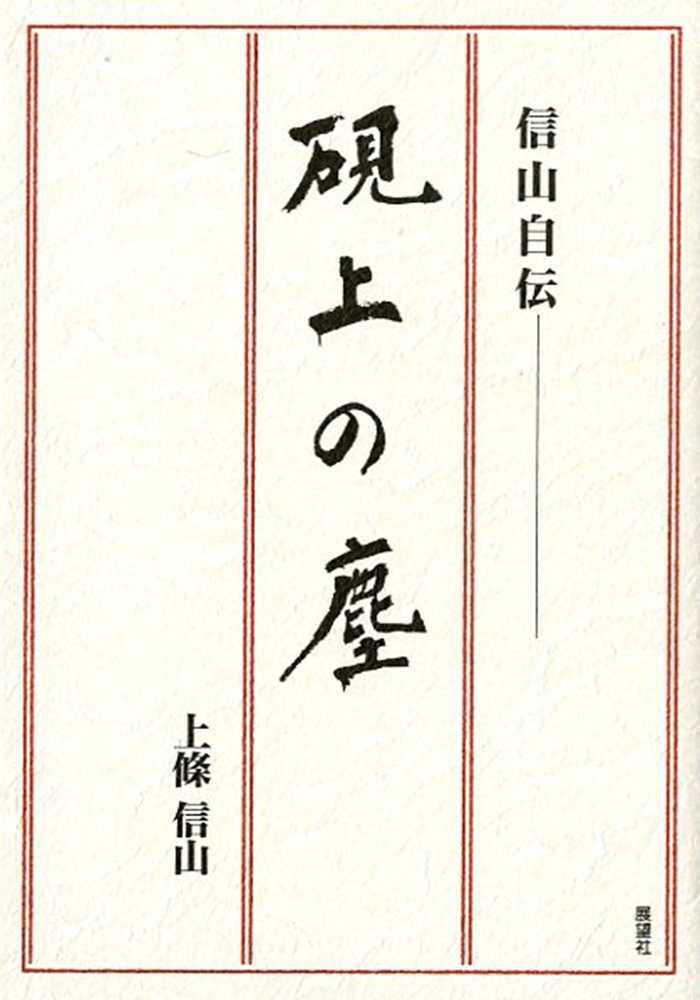 信山自伝――
硯上の塵
上條 信山
展望社